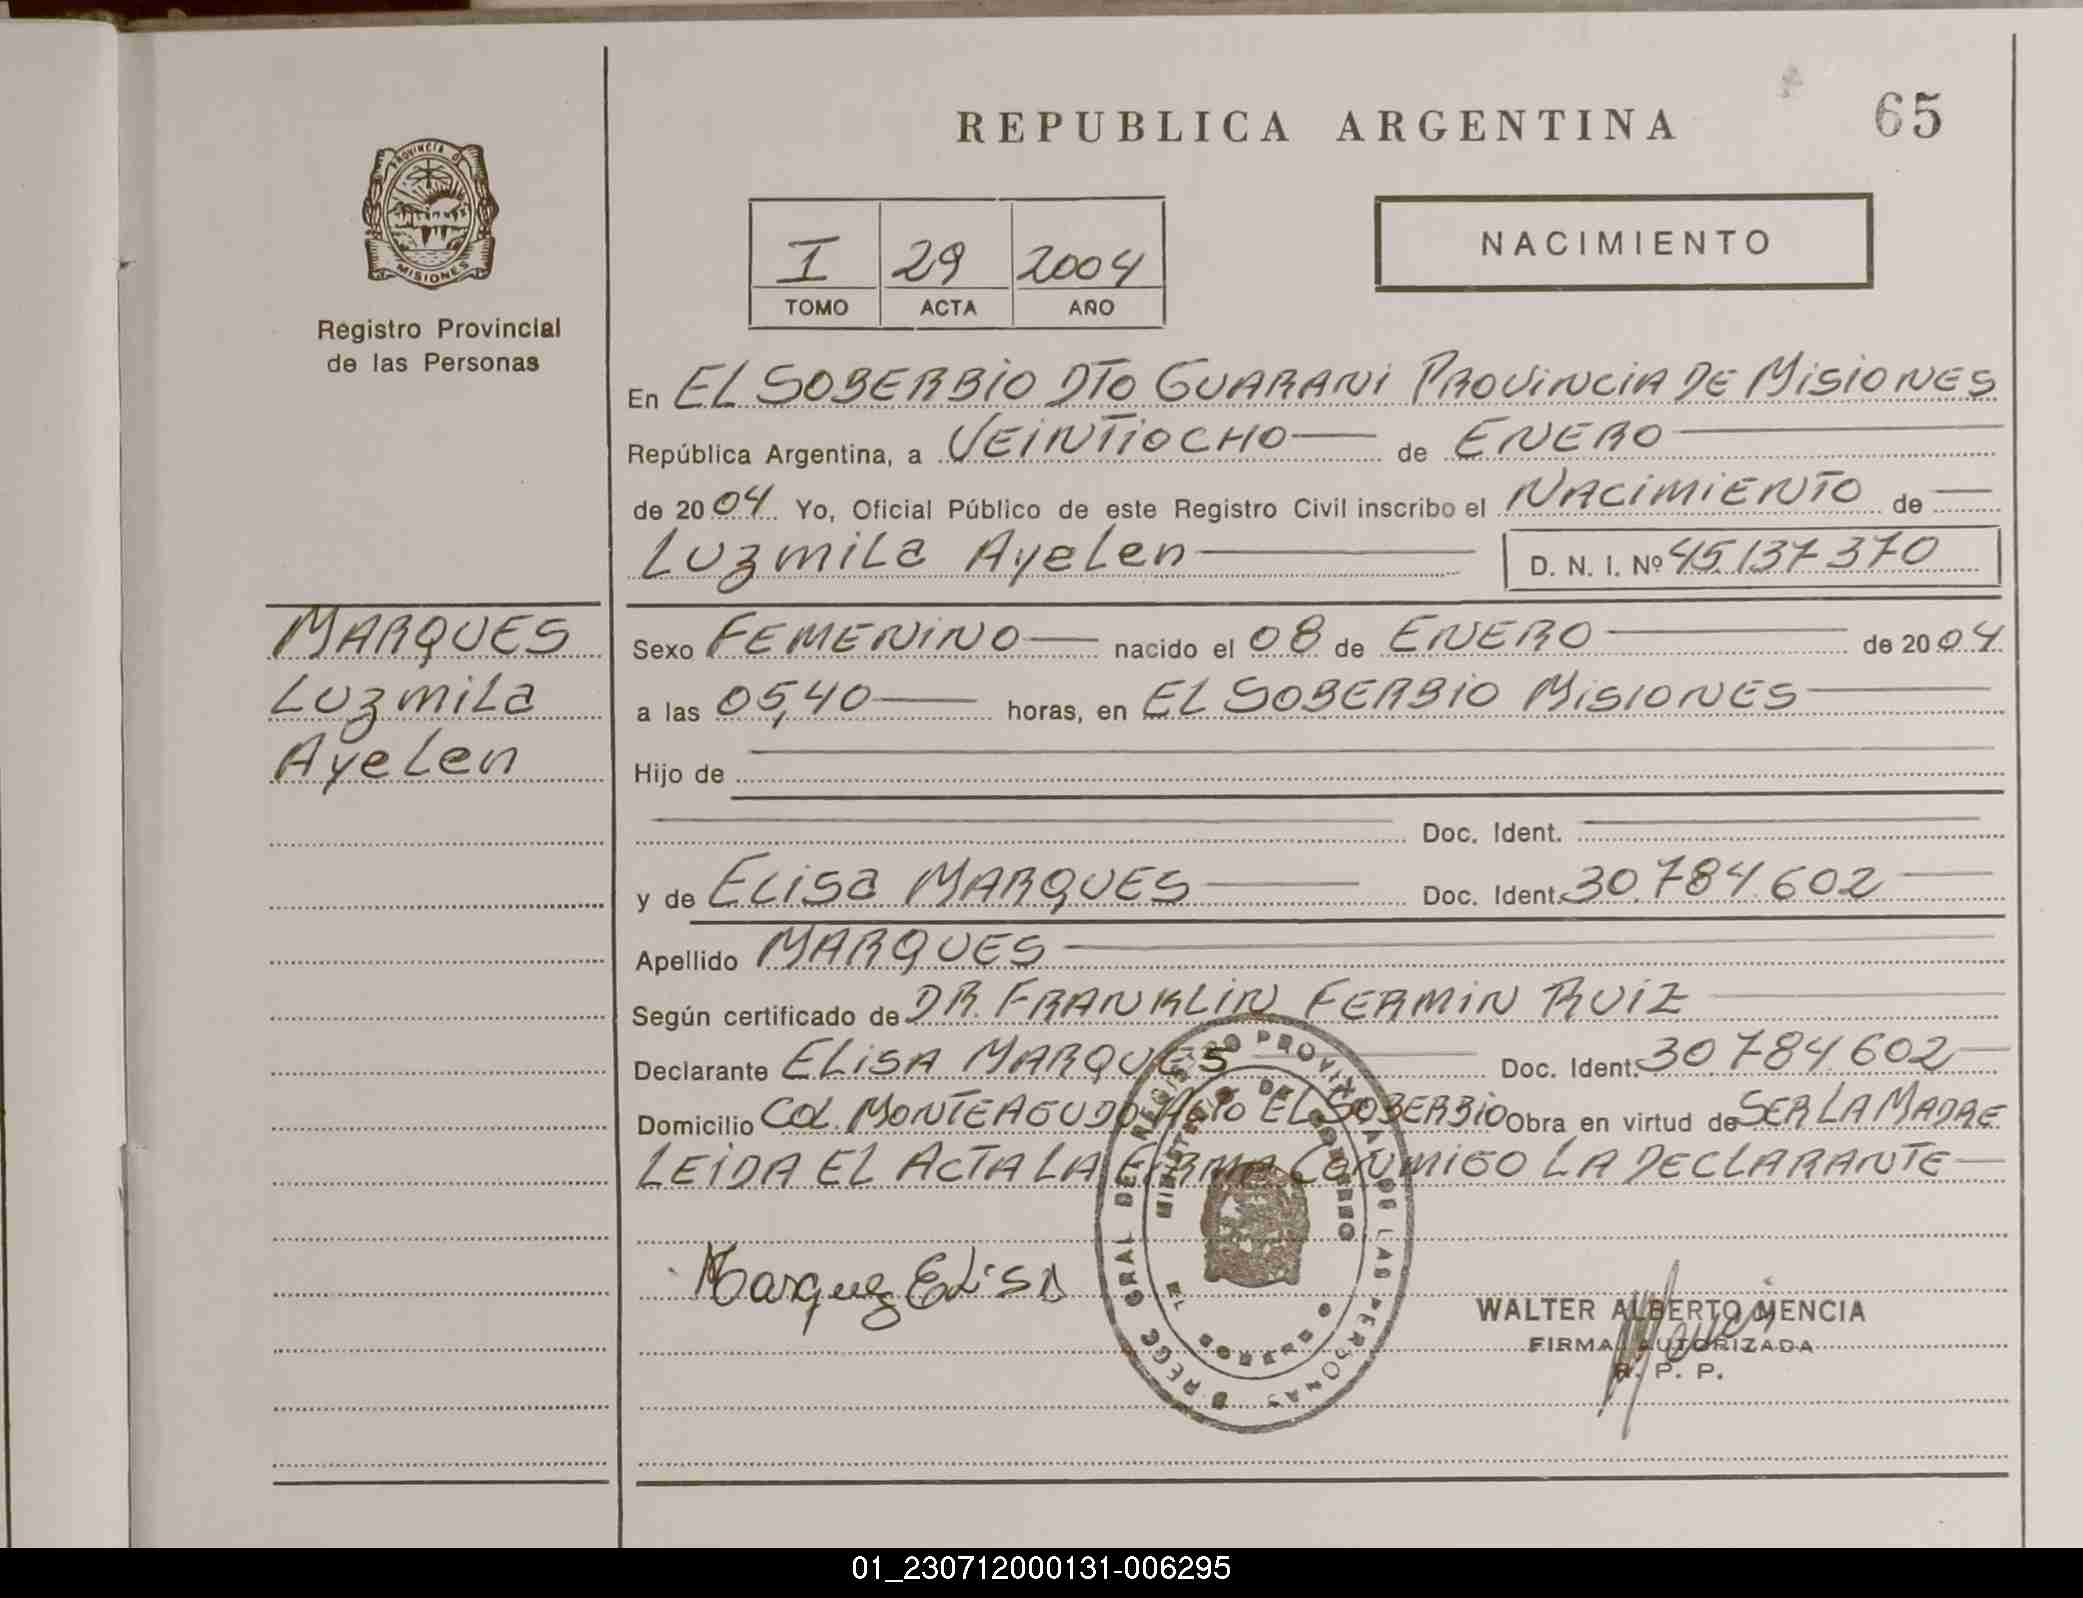 REPUBLICA ARGENTINA
65
PROVINCIA D
MISIONES
Registro Provincial
de las Personas
I 29 2004
TOMO ACTA AÑO
NACIMIENTO
En EL SOBERBIO DTO GUARANI PROVINCIA DE MISIONES
República Argentina, a VEINTIOCHO de ENERO
de 2004 Yo, Oficial Público de este Registro Civil inscribo el NACIMIENTO de
Luzmila Ayelen D. N. I. Nº 45.137.370
MARQUES
Luzmila
Ayelen
Sexo FEMENINO nacido el 08 de ENERO de 2004
a las 05,40 horas, en EL SOBERBIO MISIONES
Hijo de
Doc. Ident.
y de Elisa MARQUES Doc. Ident. 30.784.602
Apellido MARQUES
Según certificado de DR. FRANKLIN FERMIN RUIZ
Declarante ELISA MARQUES Doc. Ident. 30.784.602
Domicilio COL. MONTEAGUDO EL SOBERBIO Obra en virtud de SER LA MADRE
LEIDA EL ACTA LA FIRMA CONMIGO LA DECLARANTE
Marquez ELiSA
REGISTRO PROVINCIAL DE LAS PERSONAS
MINISTERIO DE GOBIERNO
EL SOBERBIO
WALTER ALBERTO MENCIA
FIRMA AUTORIZADA
R. P. P.
01_230712000131-006295